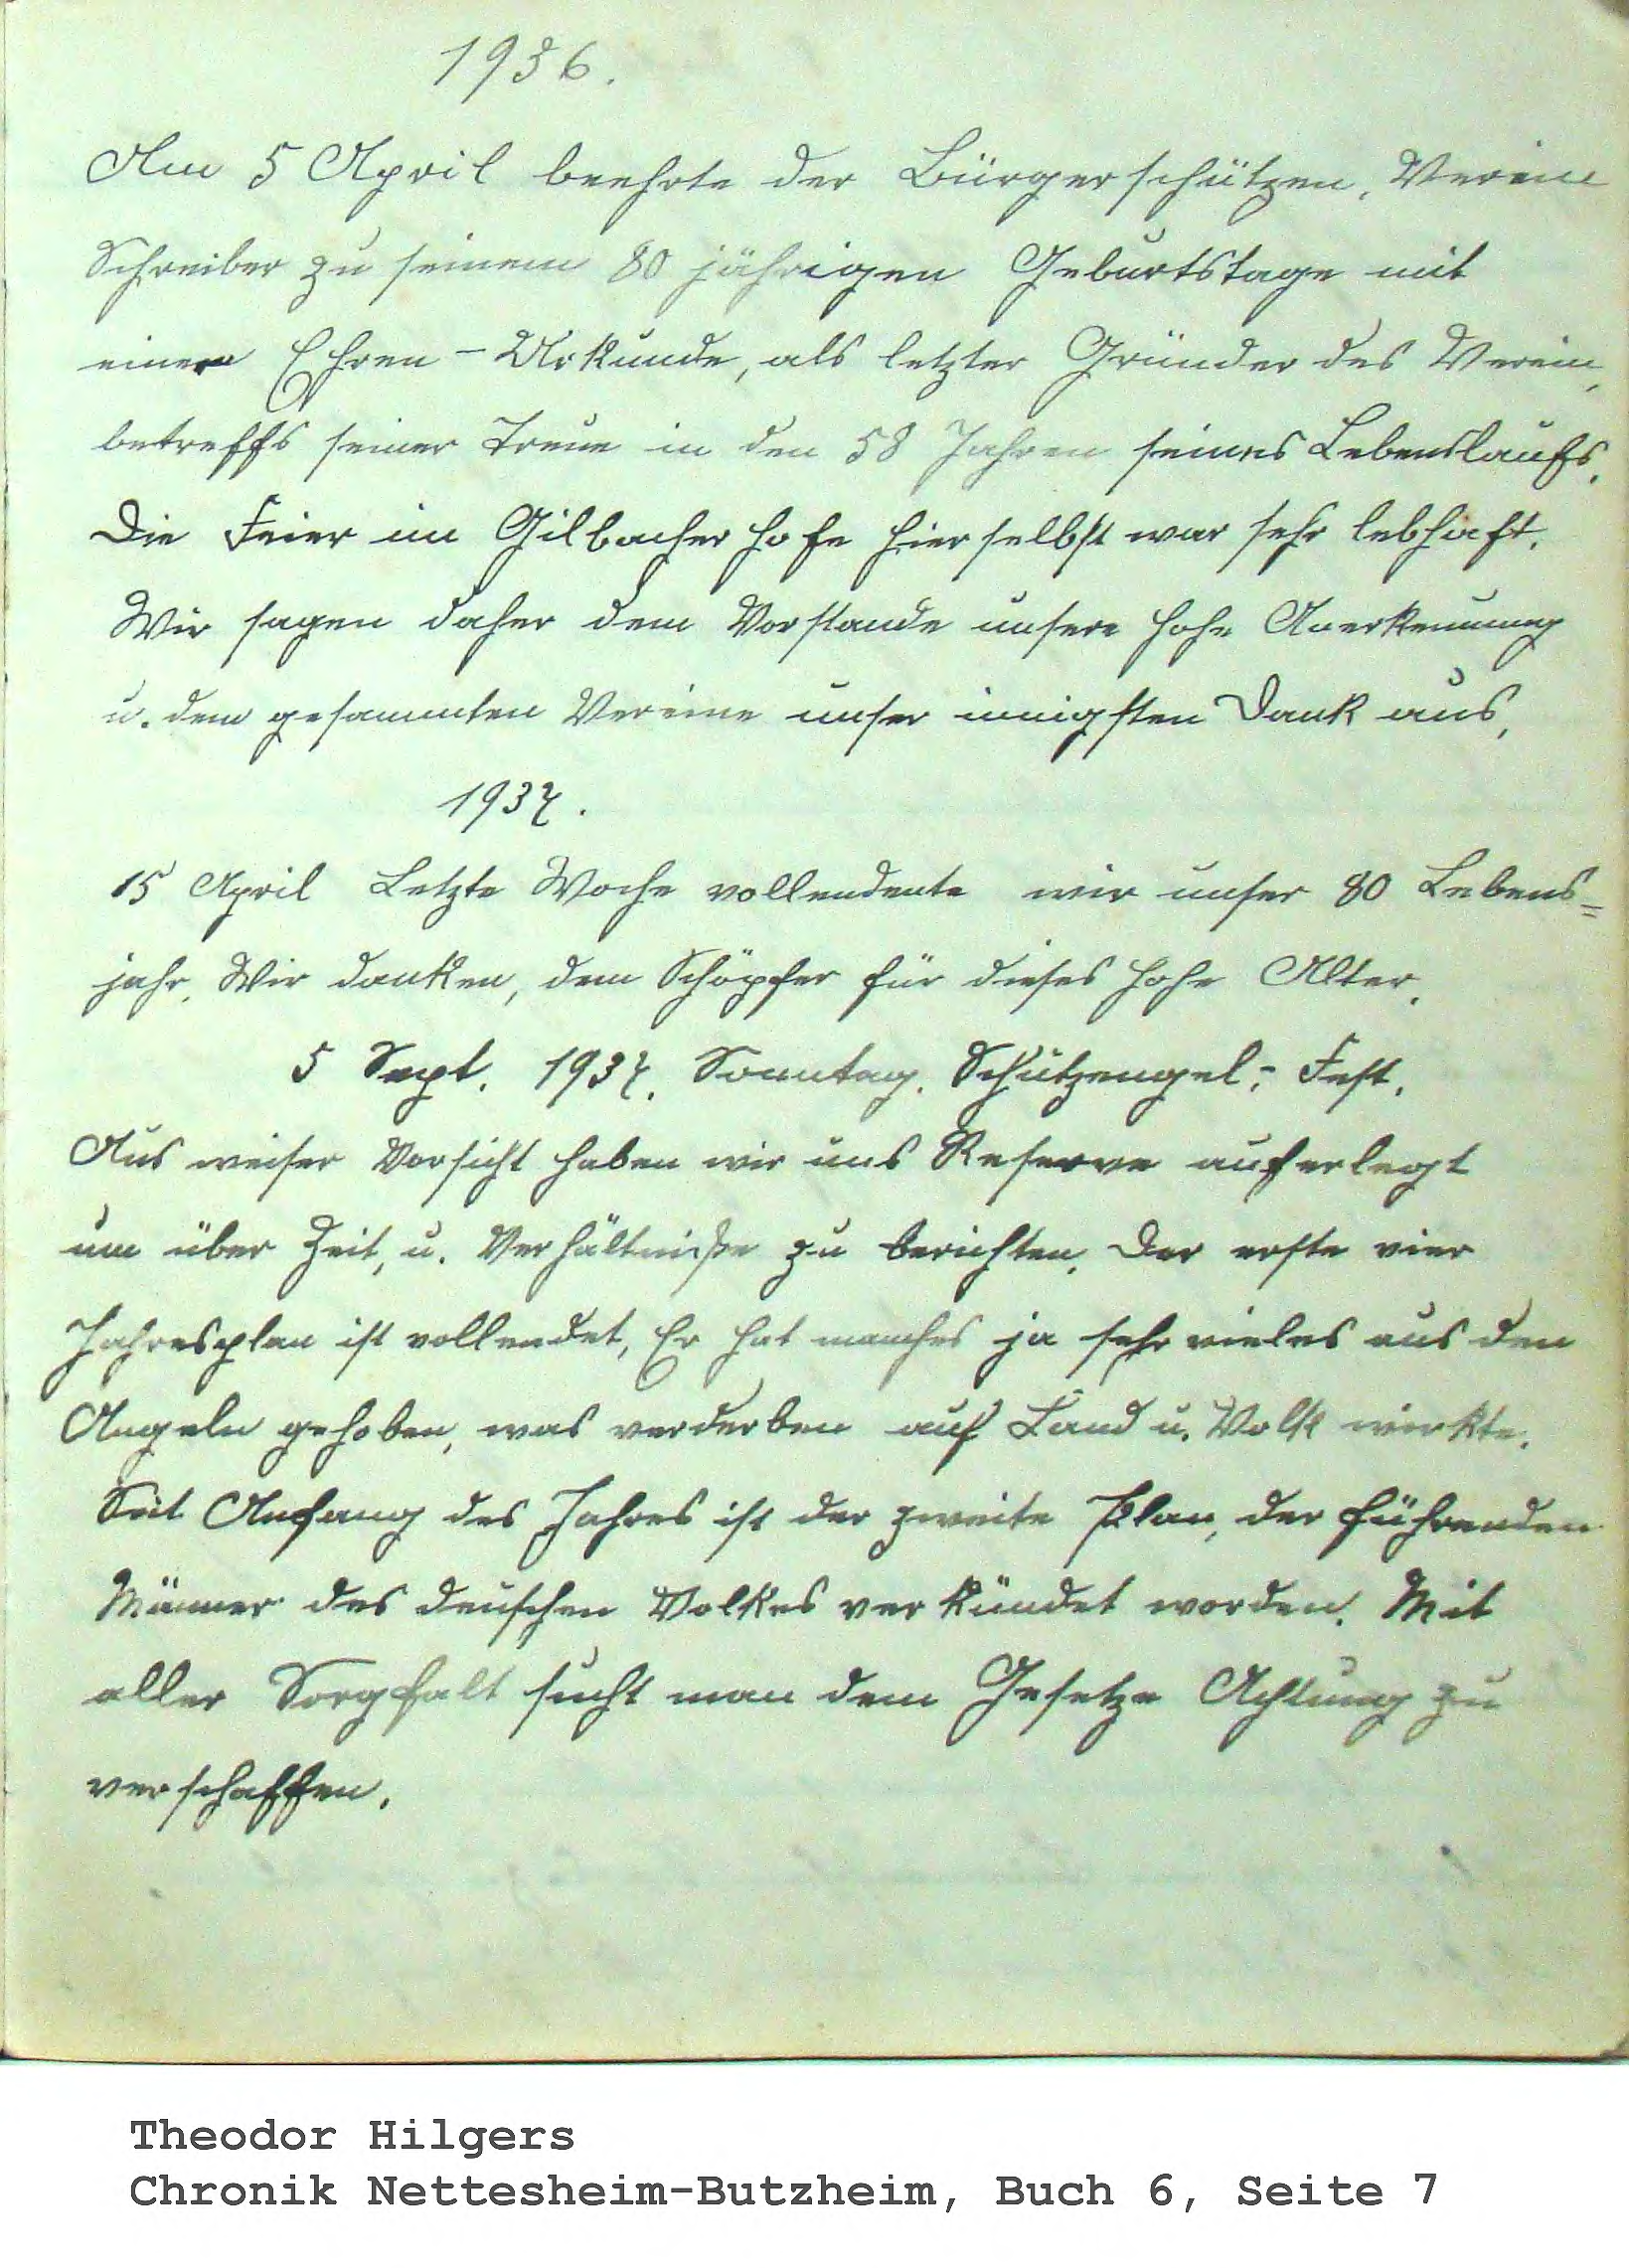 1936.
Am 5 April beehrte der Bürgerschützen, Verein
Schreiber zu seinem 80 jährigen Geburtstage mit
einer Ehren - Urkunde, als letzter Gründer des Verein,
betreffs seiner Treue in den 58 Jahren seines Lebenslaufs.
Die Feier im Gilbacher Hofe hierselbst war sehr lebhaft.
Wir sagen daher dem Vorstande unsere hohe Anerkennung
u. dem gesammten Vereine unser innigsten Dank aus,
1937.
15 April Letzte Woche vollendente wir unser 80 Lebens=
jahr, Wir danken, dem Schöpfer für dieses hohe Alter,
5 Sept. 1937. Sonntag. Schützengel,- Fest.
Aus weiser Vorsicht haben wir uns Reserve auferlegt
um über Zeit, u. Verhältniße zu berichten. Der erste vier
Jahresplan ist vollendet, Er hat manches ja sehr vieles aus den
Angeln gehoben, was verderben auf Land u. Volk wirkte.
Seit Anfang des Jahres ist der zweite Plan, der führenden
Männer des deuschen Volkes verkündet worden. Mit
aller Sorgfalt sucht man dem Gesetze Achtung zu
verschaffen.
Theodor Hilgers
Chronik Nettesheim-Butzheim, Buch 6, Seite 7